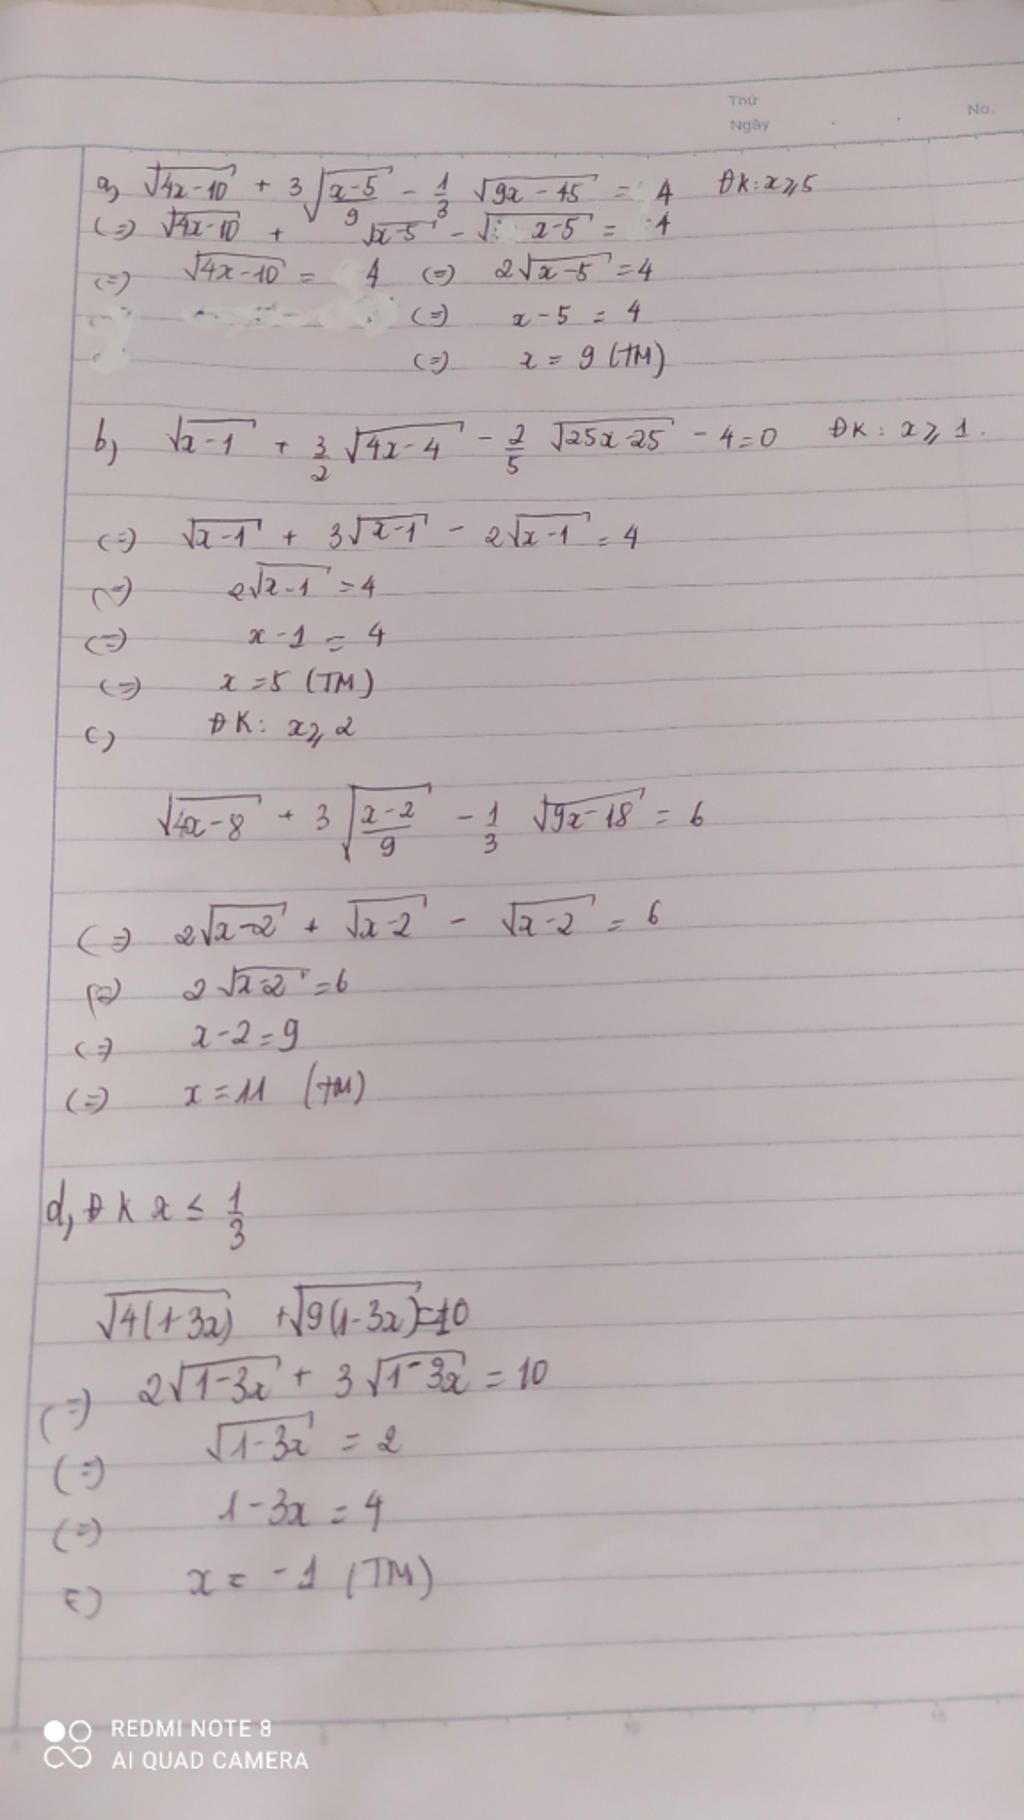 Thứ
Ngày No.
a, √(4x-10) + 3√((x-5)/9) - 1/3 √(9x-45) = 4 ĐK: x ⩾ 5
(=) √(4x-10) + √(x-5) - √(x-5) = 4
(=) √(4x-10) = 4 (=) 2√(x-5) = 4
(=) x-5 = 4
(=) x = 9 (TM)
b, √(x-1) + 3/2 √(4x-4) - 2/5 √(25x-25) - 4 = 0 ĐK: x ⩾ 1.
(=) √(x-1) + 3√(x-1) - 2√(x-1) = 4
(=) 2√(x-1) = 4
(=) x-1 = 4
(=) x = 5 (TM)
c, ĐK: x ⩾ 2
√(4x-8) + 3√((x-2)/9) - 1/3 √(9x-18) = 6
(=) 2√(x-2) + √(x-2) - √(x-2) = 6
(=) 2√(x-2) = 6
(=) x-2 = 9
(=) x = 11 (TM)
d, ĐK x ≤ 1/3
√(4(1-3x)) + √(9(1-3x)) = 10
(=) 2√(1-3x) + 3√(1-3x) = 10
(=) √(1-3x) = 2
(=) 1-3x = 4
(=) x = -1 (TM)
REDMI NOTE 8
AI QUAD CAMERA